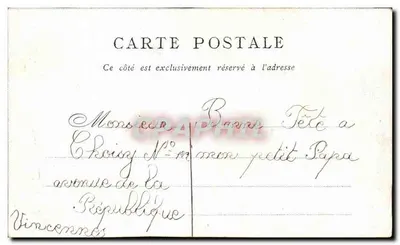 CARTE POSTALE
Ce côté est exclusivement réservé à l'adresse
Monsieur
Choisy No
avenue de la
République
Vincennes
Bonne Fête a
mon petit Papa